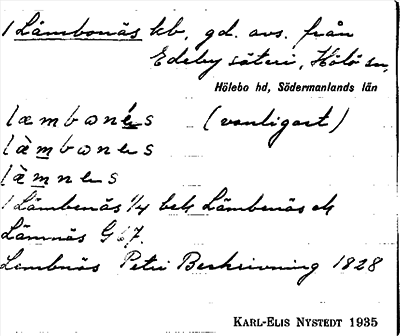 1 Lämbonäs kb, gd. avs. från
Edeby säteri, Hölö sn,
Hölebo hd, Södermanlands län
læmbɷnés (vanligast)
læ̀mbɷnɛs
læ̀mnɛs
1 Lämbenäs 1/4 bek Lämbenäs ek
Lämnäs G 67.
Lembnäs Petri Beskrivning 1828
KARL-ELIS NYSTEDT 1935